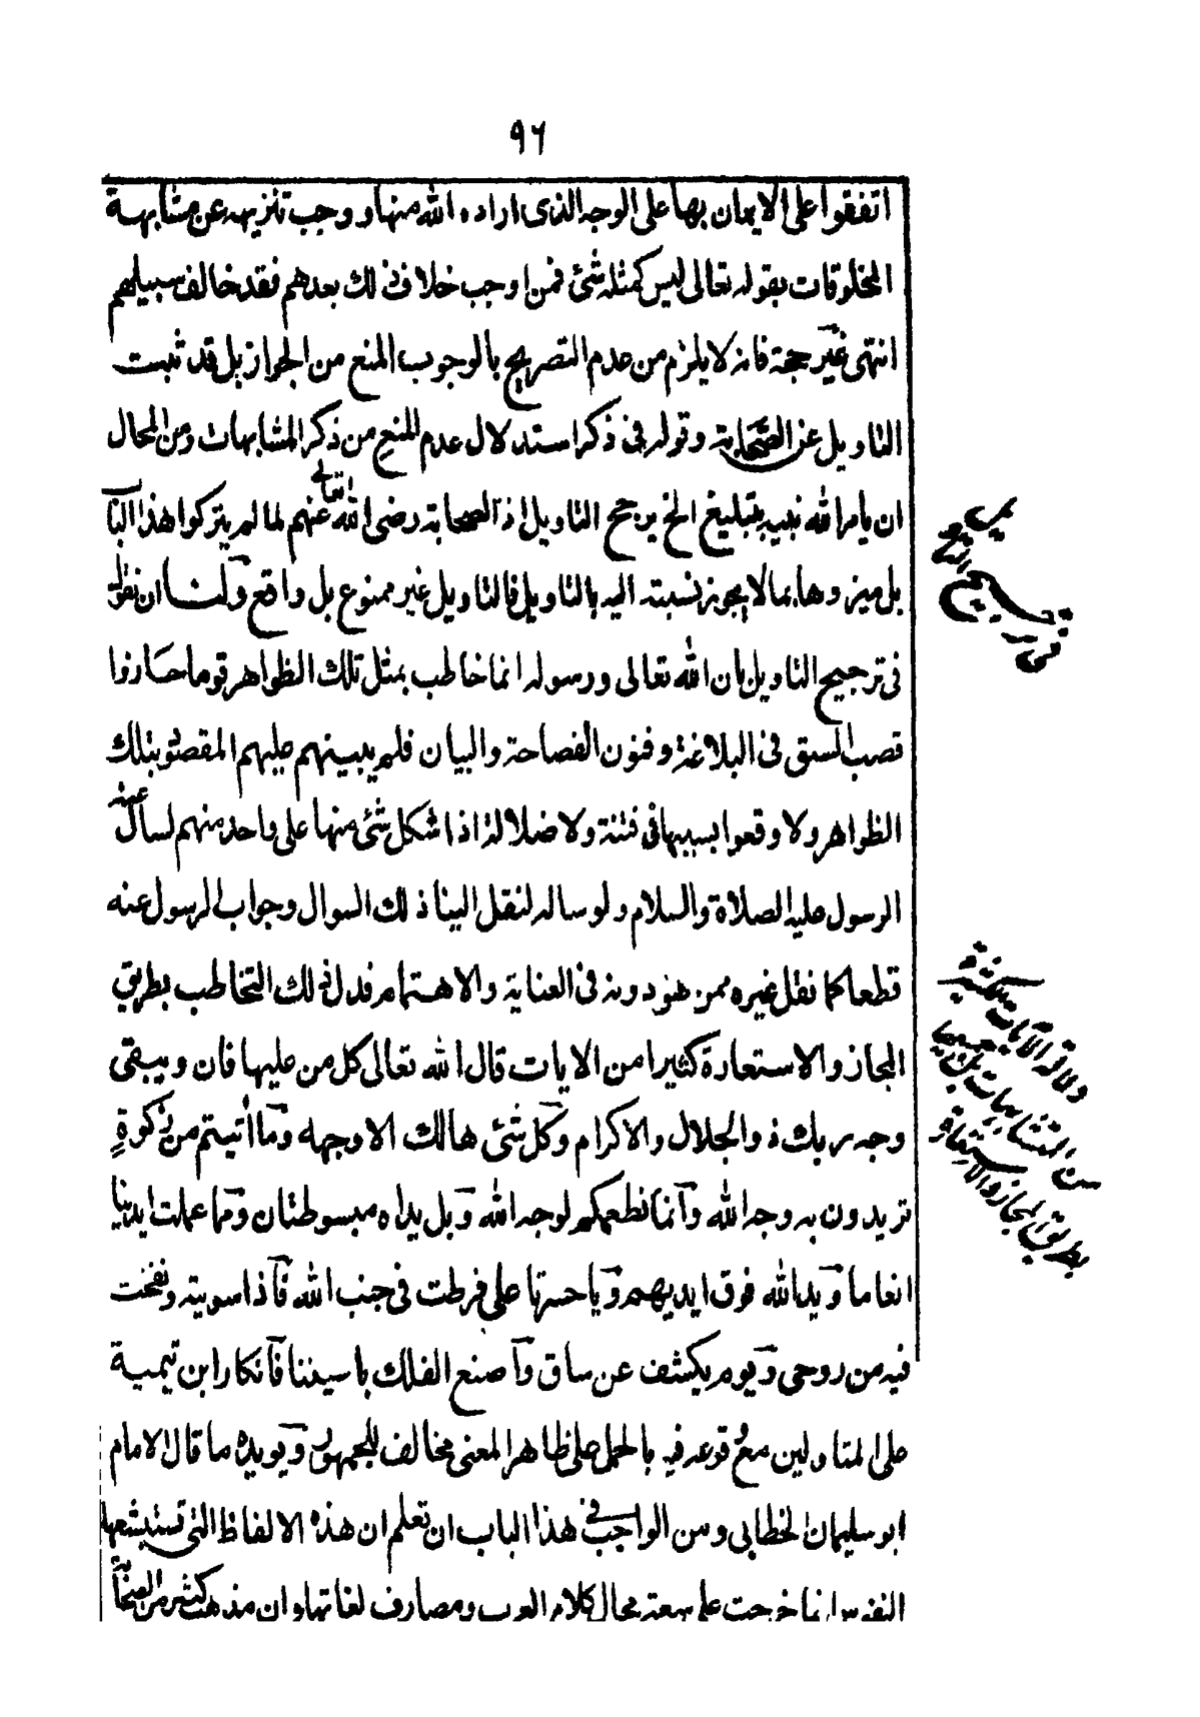 ٩٦
اتفقوا على الايمان بها على الوجه الذى اراده الله منها و وجب تنزيهه عن مشابهة
المخلوقات بقوله تعالى ليس كمثله شئ فمن اوجب خلاف ذلك بعدهم فقد خالف سبيلهم
انتهى غير حجة فانه لا يلزم من عدم التصريح بالوجوب المنع من الجواز بل قد ثبت
التاويل عن الصحابة وقوله فى ذكر استدلال عدم المنع من ذكر المشابهات ومن المحال
ان يامر الله نبيه بتبليغ الخ يرجح التاويل اذ الصحابة رضى الله تعالى عنهم لما لم يتركوا هذا الباب
بل ميزوها بما لا يجوز نسبته اليه بالتاويل فالتاويل غير ممنوع بل واقع ولنا ان نقول
فى ترجيح التاويل بان الله تعالى ورسوله انما خاطب بمثل تلك الظواهر قوما حازوا
قصب السبق فى البلاغة وفنون الفصاحة والبيان فلم يبينهم عليهم المقصود بتلك
الظواهر ولا وقعوا بسببها فى فتنة ولا ضلالة اذا اشكل شئ منها على واحد منهم لسأل عنه
الرسول عليه الصلاة والسلام ولو ساله لنقل الينا ذلك السوال وجواب الرسول عنه
قطعا كما نقل غيره ممن هو دونه فى العناية والاهتمام فدل ذلك التخاطب بطريق
المجاز والاستعارة كثيرا من الايات قال الله تعالى كل من عليها فان ويبقى
وجه ربك ذو الجلال والاكرام وكل شئ هالك الا وجهه وما اتيتم من زكوة
تريدون به وجه الله وانما نطعمكم لوجه الله وبل يداه مبسوطتان ومما عملت ايدينا
انعاما ويد الله فوق ايديهم ويا حسرتا على فرطت فى جنب الله فاذا سويته ونفخت
فيه من روحى ويوم يكشف عن ساق واصنع الفلك باعيننا فانكار ابن تيمية
على المتاولين مع وقوعه فيه بالحمل على ظاهر المعنى مخالف للجمهور ويويده ما قال الامام
ابو سليمان الخطابى ومن الواجب فى هذا الباب ان تعلم ان هذه الالفاظ التى تستبشعها
النفوس انما خرجت على سعة مجال كلام العرب ومصارف لغاتها وان مذهب كثير من الصحابة
فى ترجيح التاويل
دلالة الآيات الكثيرة
من المتشابهات
بطريق المجاز والاستعارة